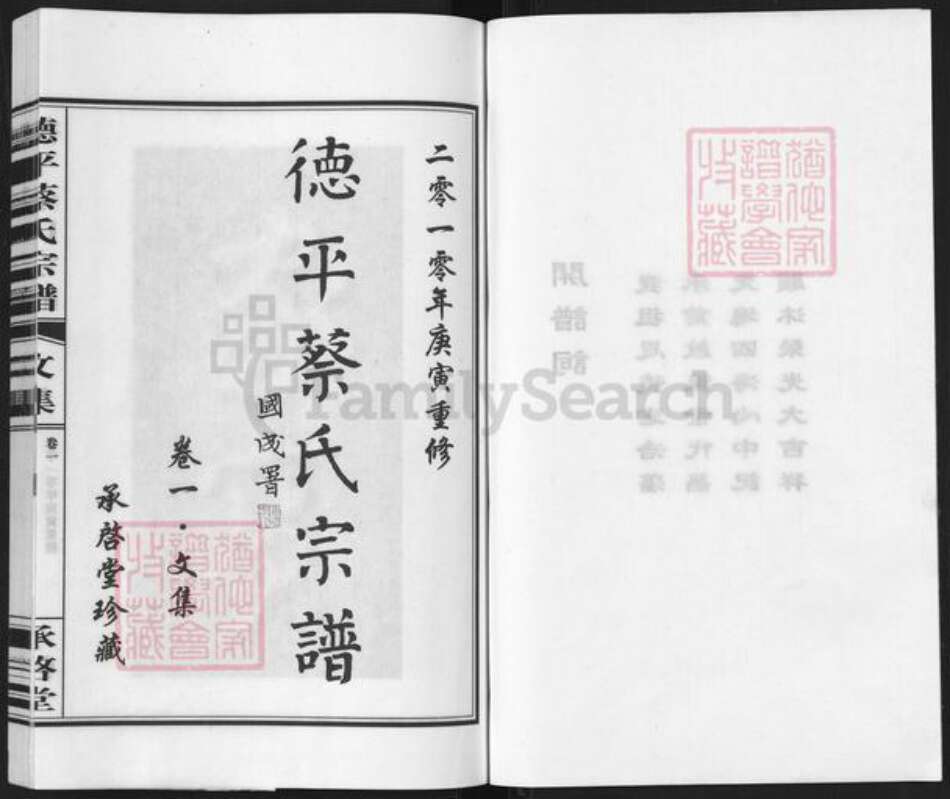 二零一零年庚寅重修
德平蔡氏宗譜
國成署
卷一·文集
承啓堂珍藏
德平蔡氏宗譜
文集
卷一
承啓堂
猶他家
譜學會
收藏
猶他家
譜學會
收藏
開譜詞
FamilySearch